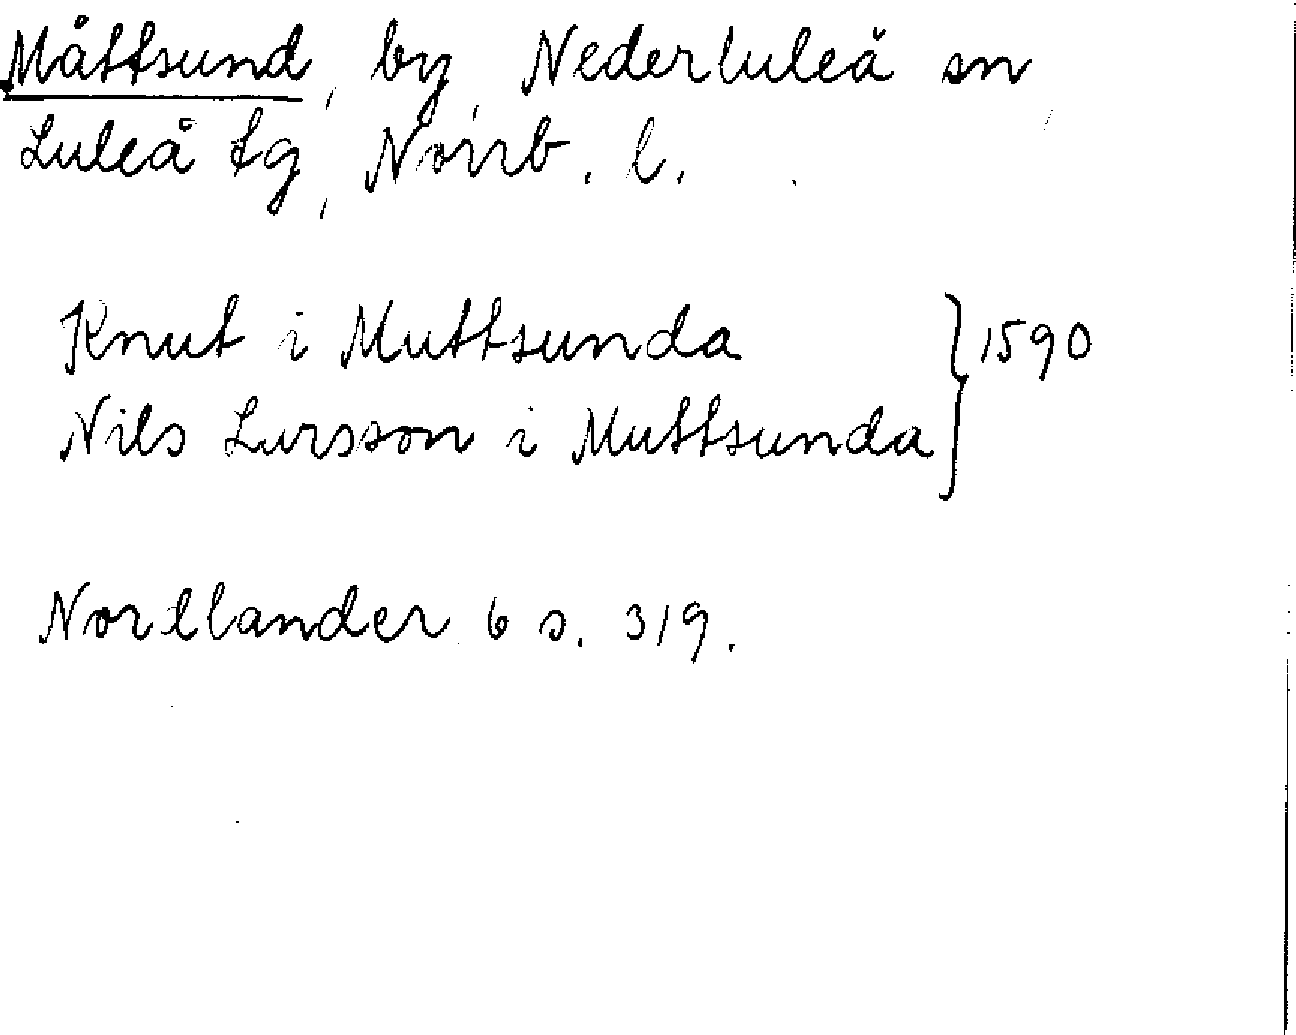 Måttsund, by, Nederluleå sn,
Luleå tg, Norrb. l.
Knut i Muttsunda
Nils Larsson i Muttsunda } 1590
Nordlander 6 s. 319.